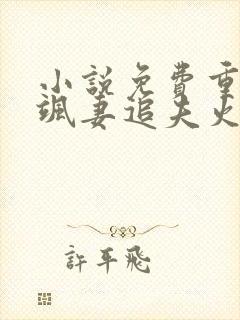 小說免費重
颯妻追夫火
許平飛